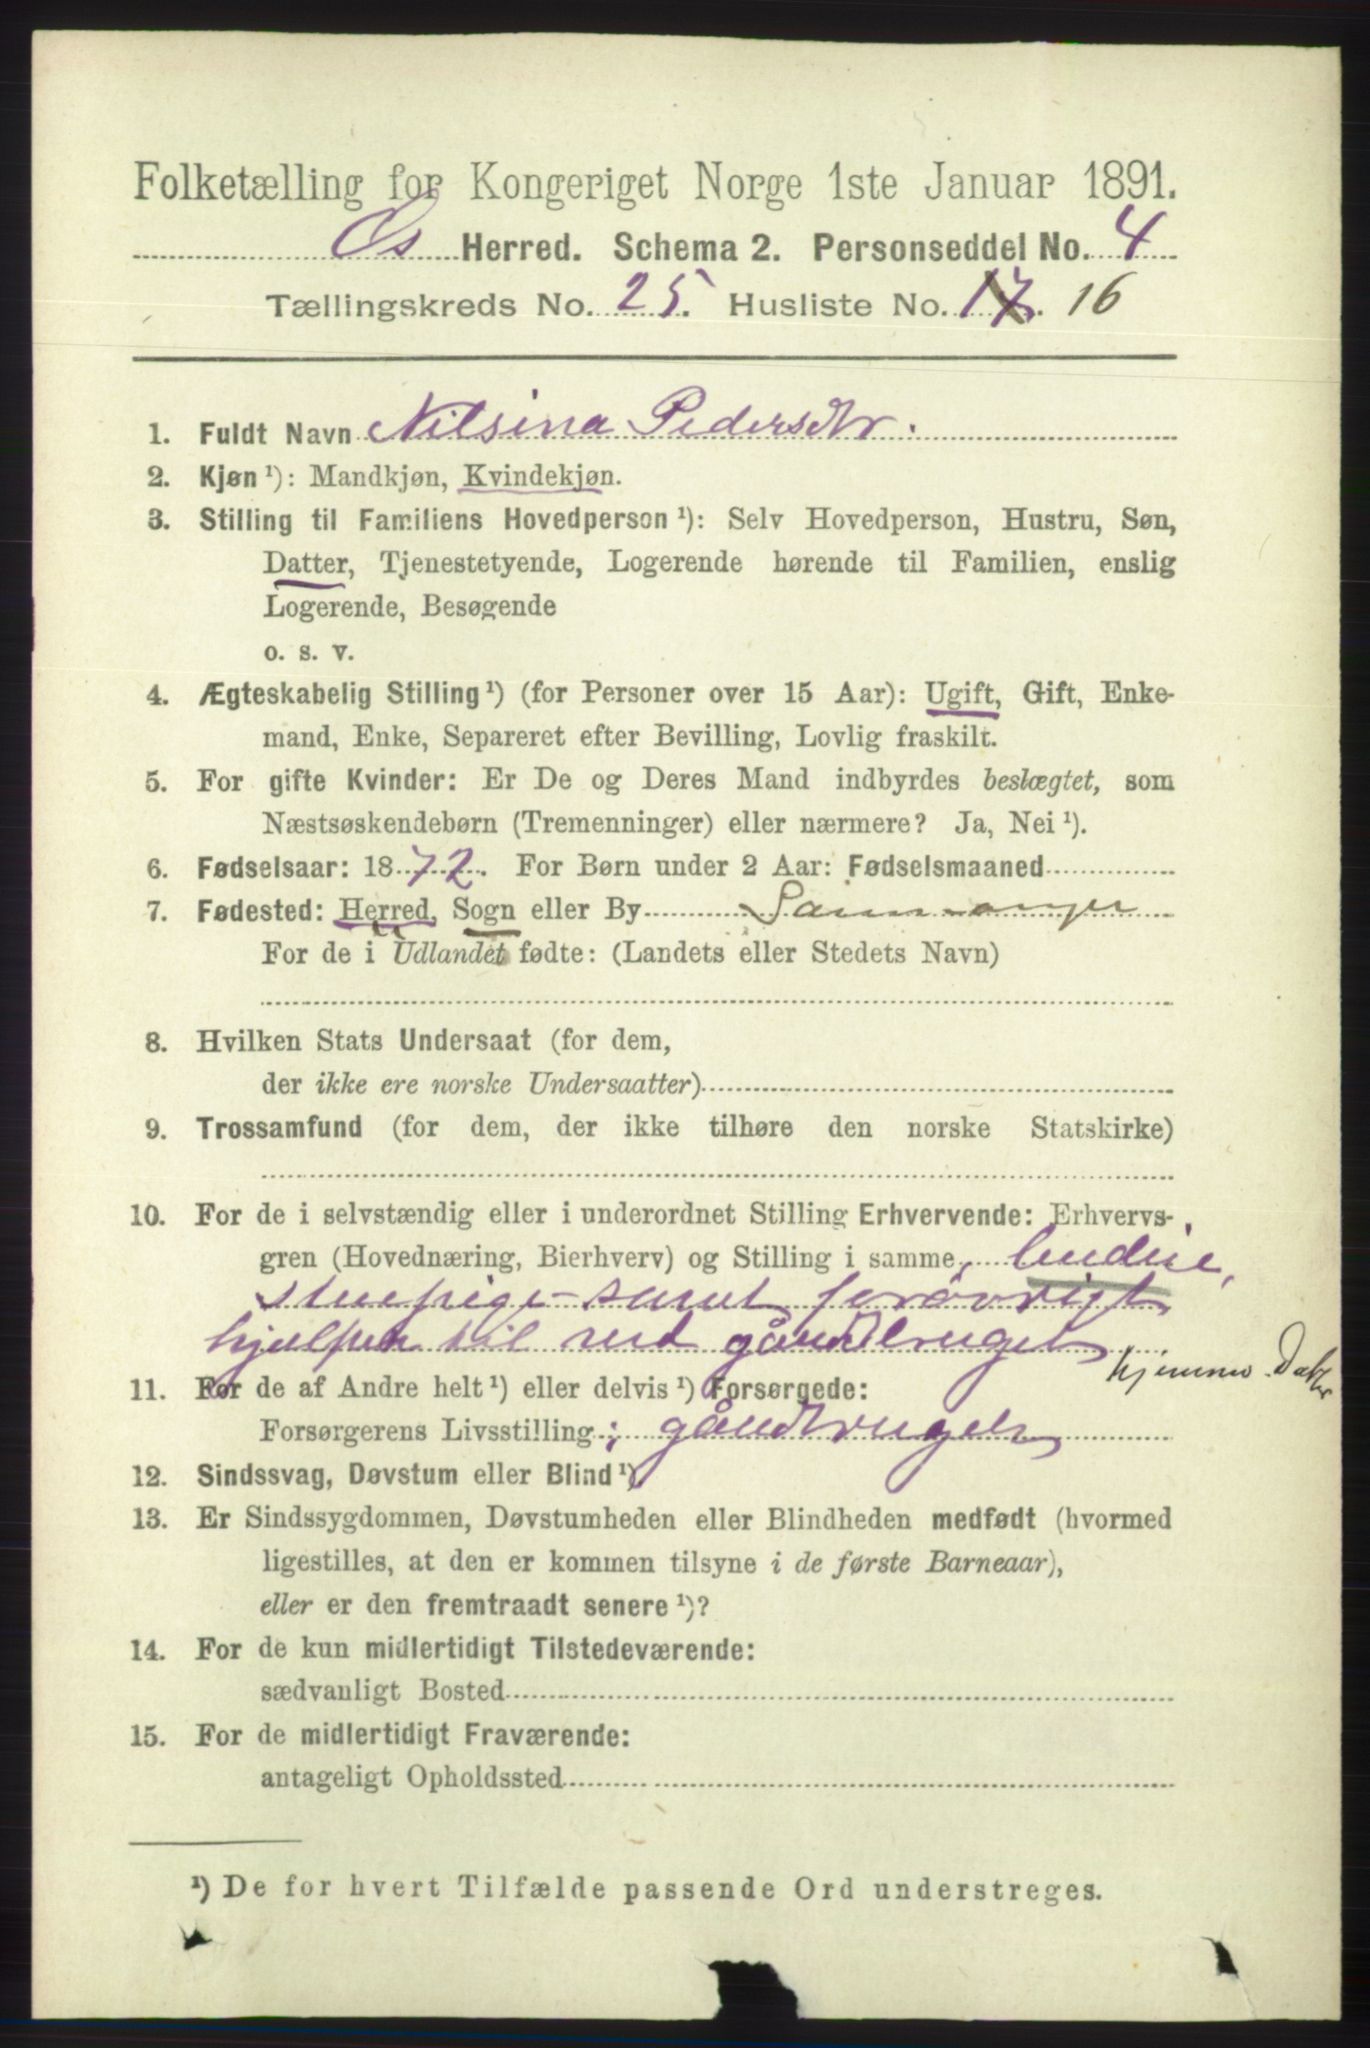 Folketælling for Kongeriget Norge 1ste Januar 1891.
Os Herred. Schema 2. Personseddel No. 4
Tællingskreds No. 25. Husliste No. 17. 16
1. Fuldt Navn Nilsina Pedersdtr.
2. Kjøn ¹): Mandkjøn, Kvindekjøn.
3. Stilling til Familiens Hovedperson ¹): Selv Hovedperson, Hustru, Søn,
Datter, Tjenestetyende, Logerende hørende til Familien, enslig
Logerende, Besøgende
o. s. v.
4. Ægteskabelig Stilling ¹) (for Personer over 15 Aar): Ugift, Gift, Enke-
mand, Enke, Separeret efter Bevilling, Lovlig fraskilt.
5. For gifte Kvinder: Er De og Deres Mand indbyrdes beslægtet, som
Næstsøskendebørn (Tremenninger) eller nærmere? Ja, Nei ¹).
6. Fødselsaar: 1872. For Børn under 2 Aar: Fødselsmaaned
7. Fødested: Herred, Sogn eller By Samnanger
For de i Udlandet fødte: (Landets eller Stedets Navn)
8. Hvilken Stats Undersaat (for dem,
der ikke ere norske Undersaatter)
9. Trossamfund (for dem, der ikke tilhøre den norske Statskirke)
10. For de i selvstændig eller i underordnet Stilling Erhvervende: Erhvervs-
gren (Hovednæring, Bierhverv) og Stilling i samme, budeie,
stuepige samt forøvrigt
hjælper til ved gårdbruget
hjemmev. Datter
11. For de af Andre helt ¹) eller delvis ¹) Forsørgede:
Forsørgerens Livsstilling: gårdbruger
12. Sindssvag, Døvstum eller Blind ¹).
13. Er Sindssygdommen, Døvstumheden eller Blindheden medfødt (hvormed
ligestilles, at den er kommen tilsyne i de første Barneaar),
eller er den fremtraadt senere ¹)?
14. For de kun midlertidigt Tilstedeværende:
sædvanligt Bosted
15. For de midlertidigt Fraværende:
antageligt Opholdssted
¹) De for hvert Tilfælde passende Ord understreges.